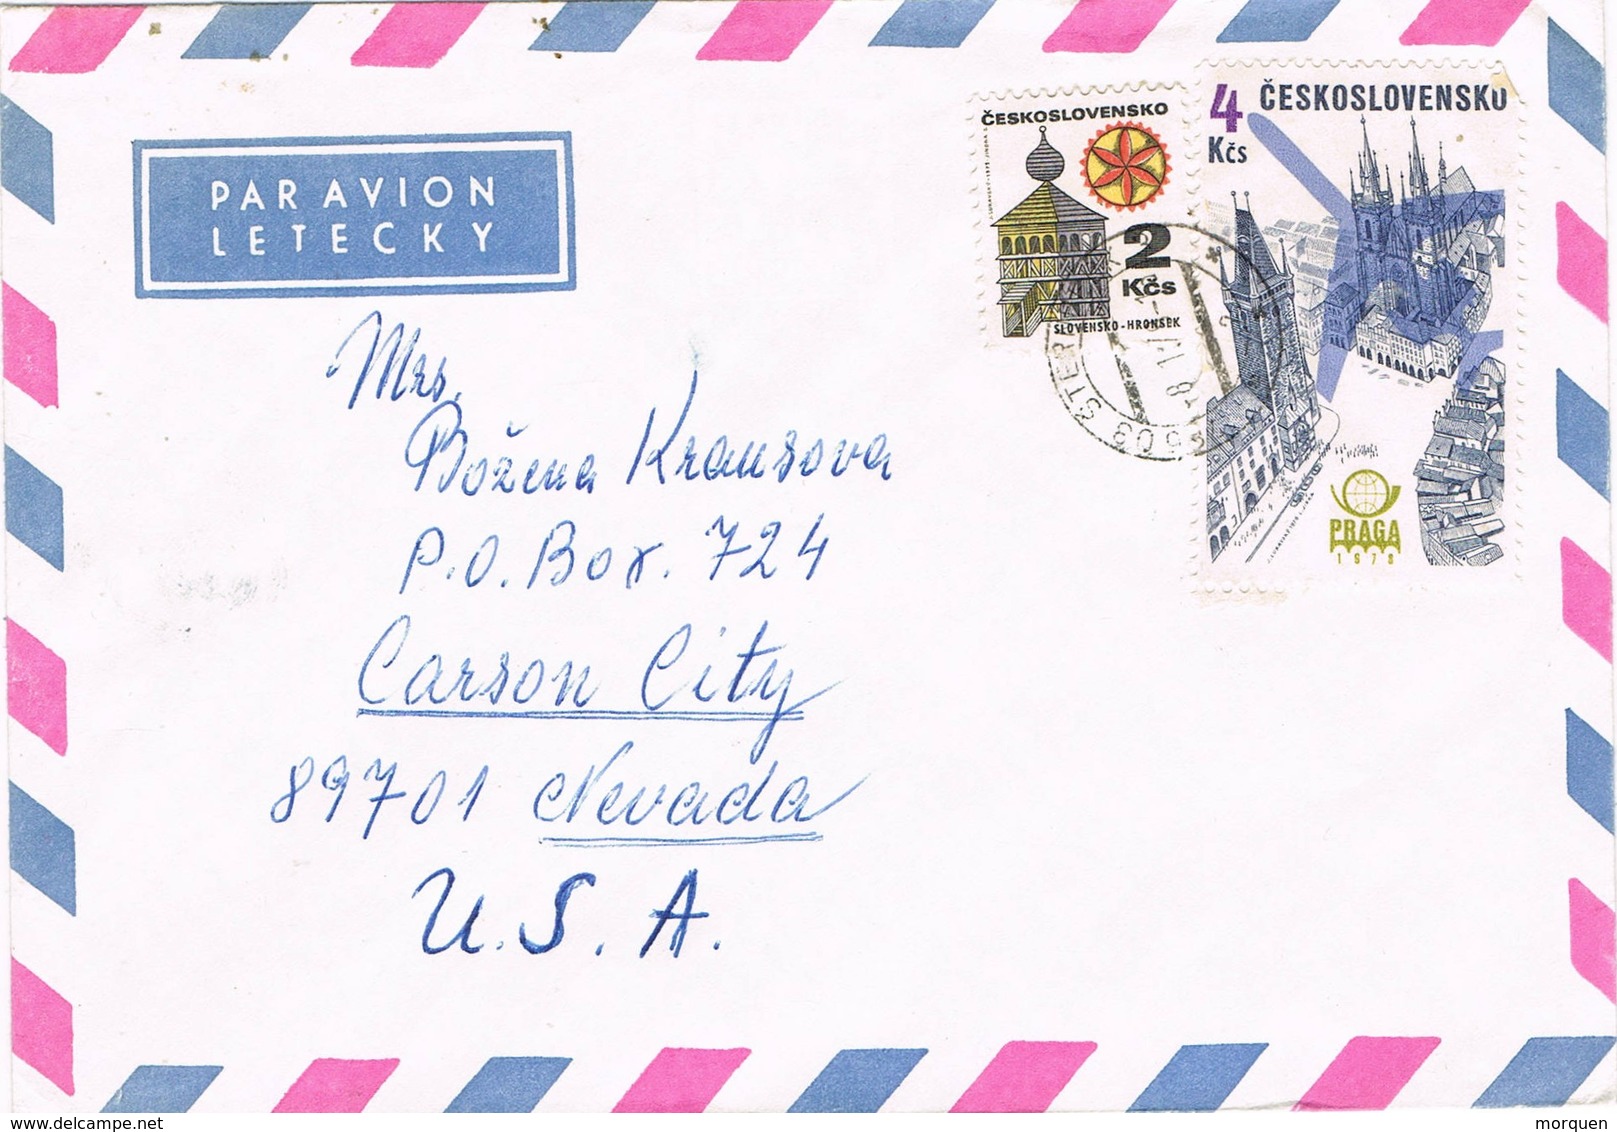 PAR AVION
LETECKY
ČESKOSLOVENSKO
2
Kčs
SLOVENSKO-HRONSEK
4
Kčs
ČESKOSLOVENSKO
PRAGA
1978
Mrs.
Božena Krausova
P.O. Box. 724
Carson City
89701 Nevada
U.S.A.
www.delcampe.net
morquen